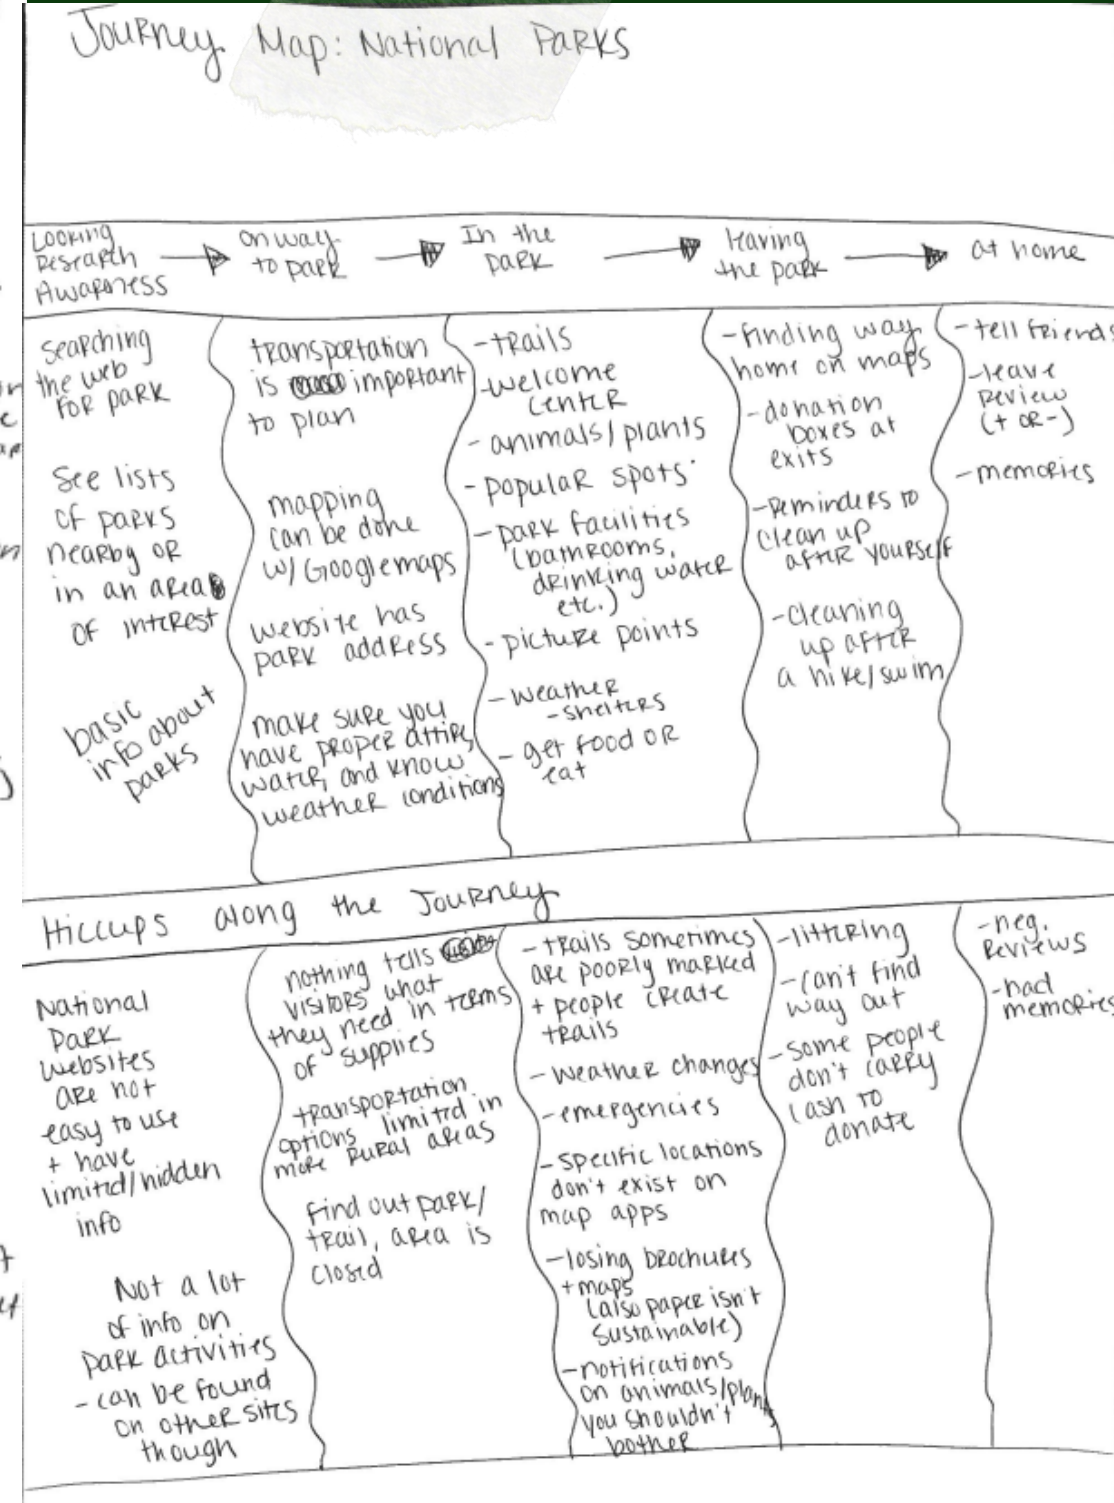 Journey Map: National Parks
Looking
Research
Awareness
on way
to park
In the
park
leaving
the park
at home
searching
the web
for park
See lists
of parks
nearby or
in an area
of interest
basic
info about
parks
transportation
is important
to plan
mapping
can be done
w/ Google maps
website has
park address
make sure you
have proper attire,
water, and know
weather conditions
- trails
- welcome
center
- animals/plants
- popular spots
- park facilities
(bathrooms,
drinking water
etc.)
- picture points
- weather
- shelters
- get food or
eat
- finding way
home on maps
- donation
boxes at
exits
- Reminders to
clean up
after yourself
- cleaning
up after
a hike/swim
- tell friends
- leave
review
(+ or -)
- memories
Hiccups along the Journey
National
Park
websites
are not
easy to use
+ have
limited/hidden
info
Not a lot
of info on
park activities
- can be found
on other sites
though
nothing tells
visitors what
they need in terms
of supplies
transportation
options limited in
more rural areas
find out park/
trail, area is
closed
- trails sometimes
are poorly marked
+ people create
trails
- weather changes
- emergencies
- specific locations
don't exist on
map apps
- losing brochures
+ maps
(also paper isn't
sustainable)
- notifications
on animals/plants
you shouldn't
bother
- littering
- can't find
way out
- some people
don't carry
cash to
donate
- neg.
reviews
- bad
memories